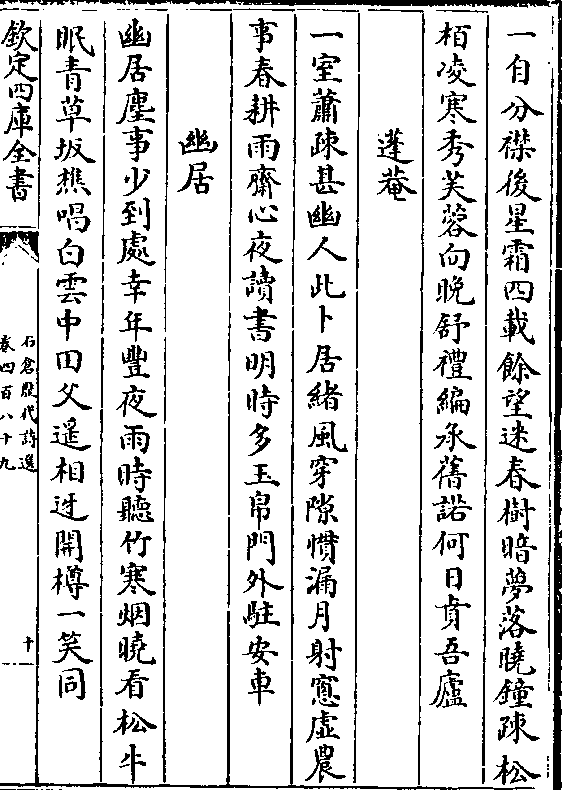 一自分襟後星霜四載餘望迷春樹暗夢落曉鐘疎松
栢凌寒秀芙蓉向晚舒禮編承舊諾何日賁吾廬
蓬菴
一室蕭疎甚幽人此卜居緒風穿隙慣漏月射窻虛農
事春耕雨齋心夜讀書明時多玉帛門外駐安車
幽居
幽居塵事少到處幸年豐夜雨時聽竹寒烟曉看松牛
眠青草坂樵唱白雲中田父遥相迓開樽一笑同
欽定四庫全書
石倉歷代詩選
卷四百八十九
十